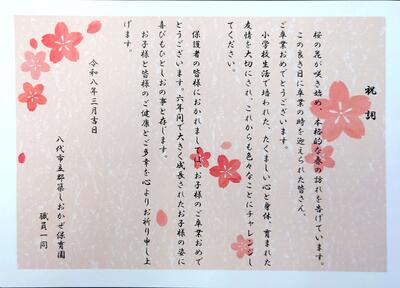 祝詞
桜の花が咲き始め、本格的な春の訪れを告げています。
この良き日に卒業の時を迎えられた皆さん、
ご卒業おめでとうございます。
小学校生活で培われた、たくましい心と身体、育まれた
友情を大切にされ、これからも色々なことにチャレンジし
てください。
保護者の皆様におかれましては、お子様のご卒業おめで
とうございます。六年間で大きく成長されたお子様の姿に
喜びもひとしおの事と存じます。
お子様と皆様のご健康とご多幸を心よりお祈り申し上
げます。
令和八年三月吉日
八代市立郡築しおかぜ保育園
職員一同